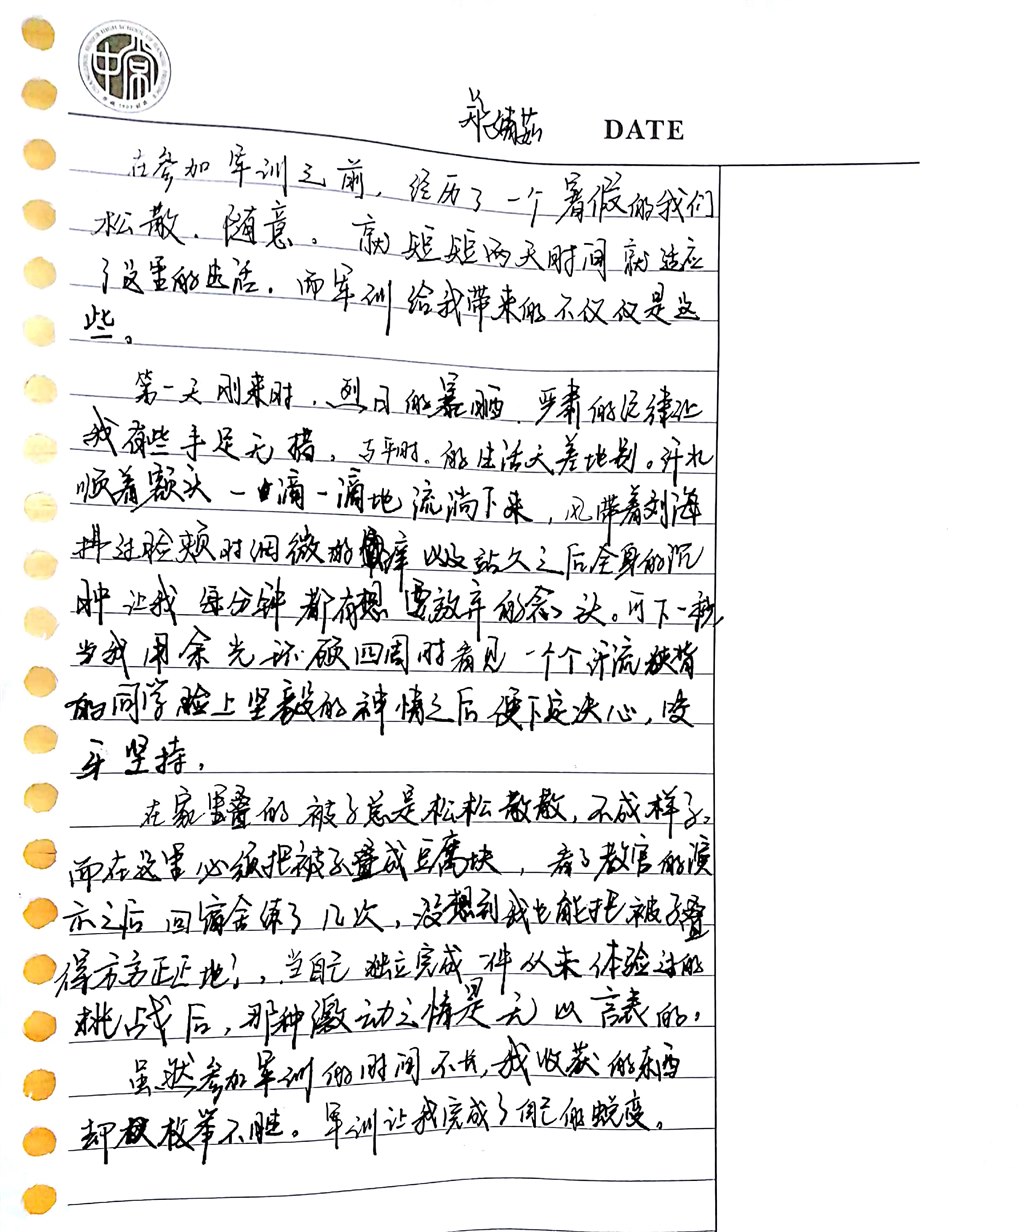 中常
DATE
在参加军训之前，经历了一个暑假的我们
松散、随意。就短短两天时间就适应
了这里的生活。而军训给我带来的不仅仅是这
些。
第一天刚来时，烈日的暴晒、严肃的纪律让
我有些手足无措，与平时的生活天差地别。汗水
顺着额头一滴一滴地流淌下来，风带着刘海
拂过脸颊时细微的痒以及站久之后全身的沉
肿让我每分钟都有想要放弃的念头。可下一秒
当我用余光环顾四周时看见一个个汗流浃背
的同学脸上坚毅的神情之后便下定决心，咬
牙坚持。
在家里叠的被子总是松松散散，不成样子。
而在这里必须把被子叠成豆腐块，看了教官的演
示之后回宿舍练了几次，没想到我也能把被子叠
得方方正正地！，当自己独立完成一件从未体验过的
挑战后，那种激动之情是无以言表的。
虽然参加军训的时间不长，我收获的东西
却枚举不胜。军训让我完成了自己的蜕变。